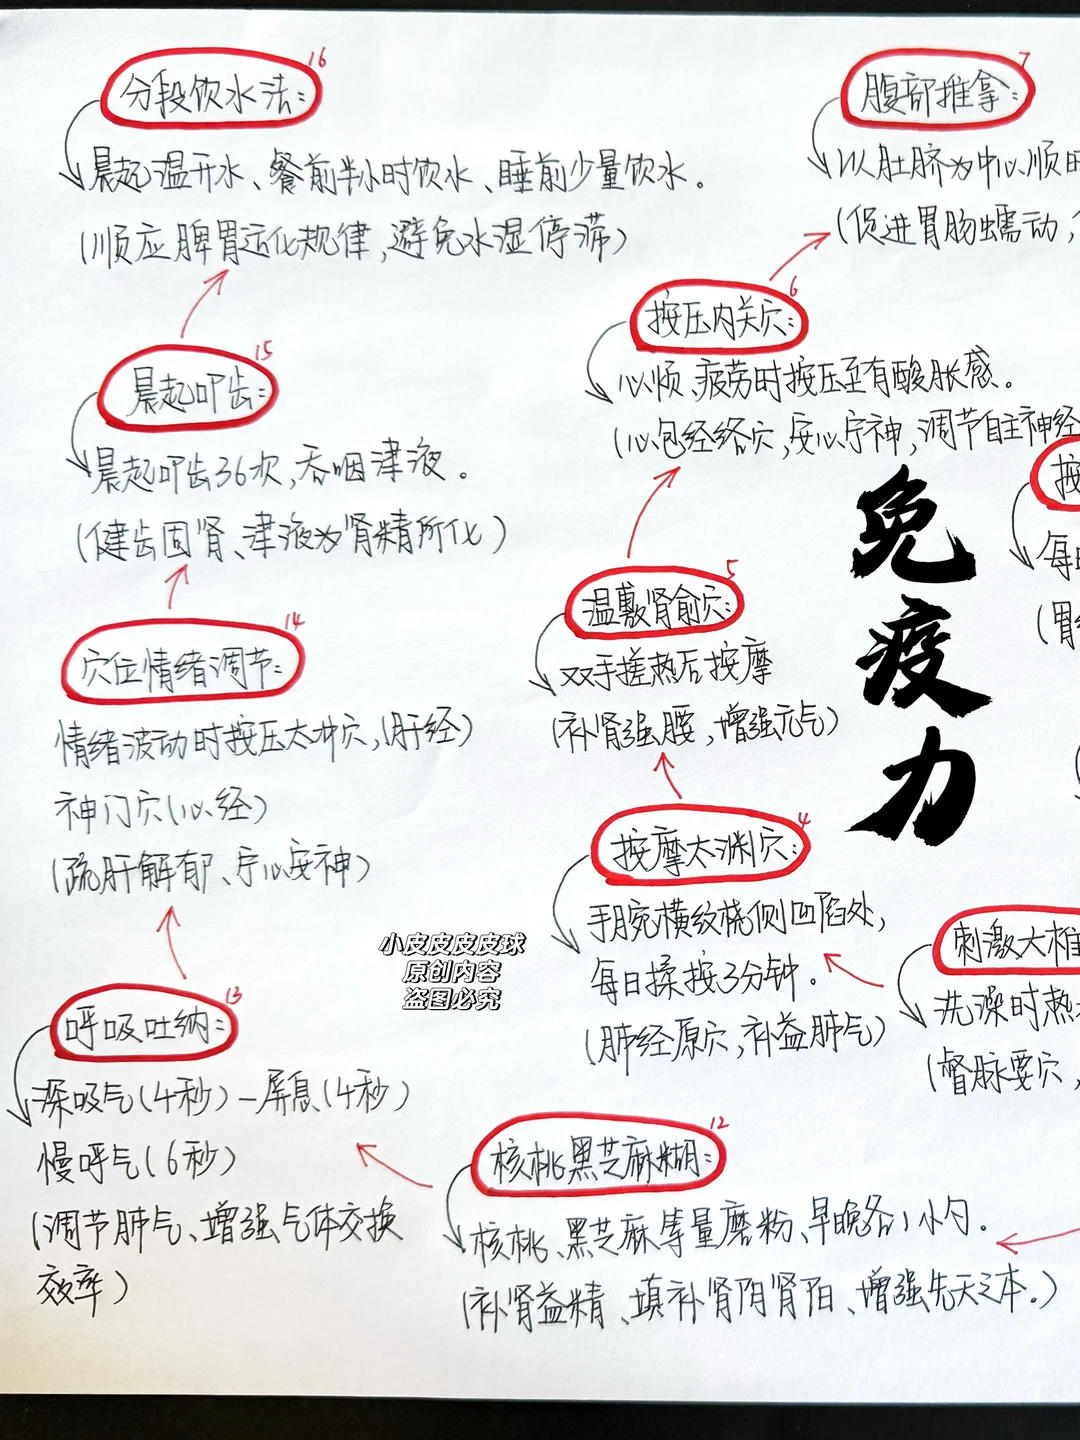 16
分段饮水法：
晨起温开水、餐前半小时饮水、睡前少量饮水。
(顺应脾胃运化规律,避免水湿停滞)
15
晨起叩齿：
晨起叩齿36次,吞咽津液。
(健齿固肾、津液为肾精所化)
14
穴位情绪调节：
情绪波动时按压太冲穴,(肝经)
神门穴(心经)
(疏肝解郁、宁心安神)
13
呼吸吐纳：
深吸气(4秒)—屏息(4秒)
慢呼气(6秒)
(调节肺气、增强气体交换
效率)
7
腹部推拿：
以肚脐为中心顺时
(促进胃肠蠕动,
6
按压内关穴：
心烦、疲劳时按压至有酸胀感。
(心包经络穴,安心宁神,调节自主神经
5
温敷肾俞穴：
双手搓热后按摩
(补肾强腰,增强元气)
4
按摩太渊穴：
手腕横纹桡侧凹陷处,
每日揉按3分钟。
(肺经原穴,补益肺气)
12
核桃黑芝麻糊：
核桃、黑芝麻等量磨粉、早晚各1小勺。
(补肾益精、填补肾阴肾阳、增强先天之本。)
免疫力
按
每日
(胃
刺激大椎
洗澡时热
(督脉要穴,
小皮皮皮皮球
原创内容
盗图必究